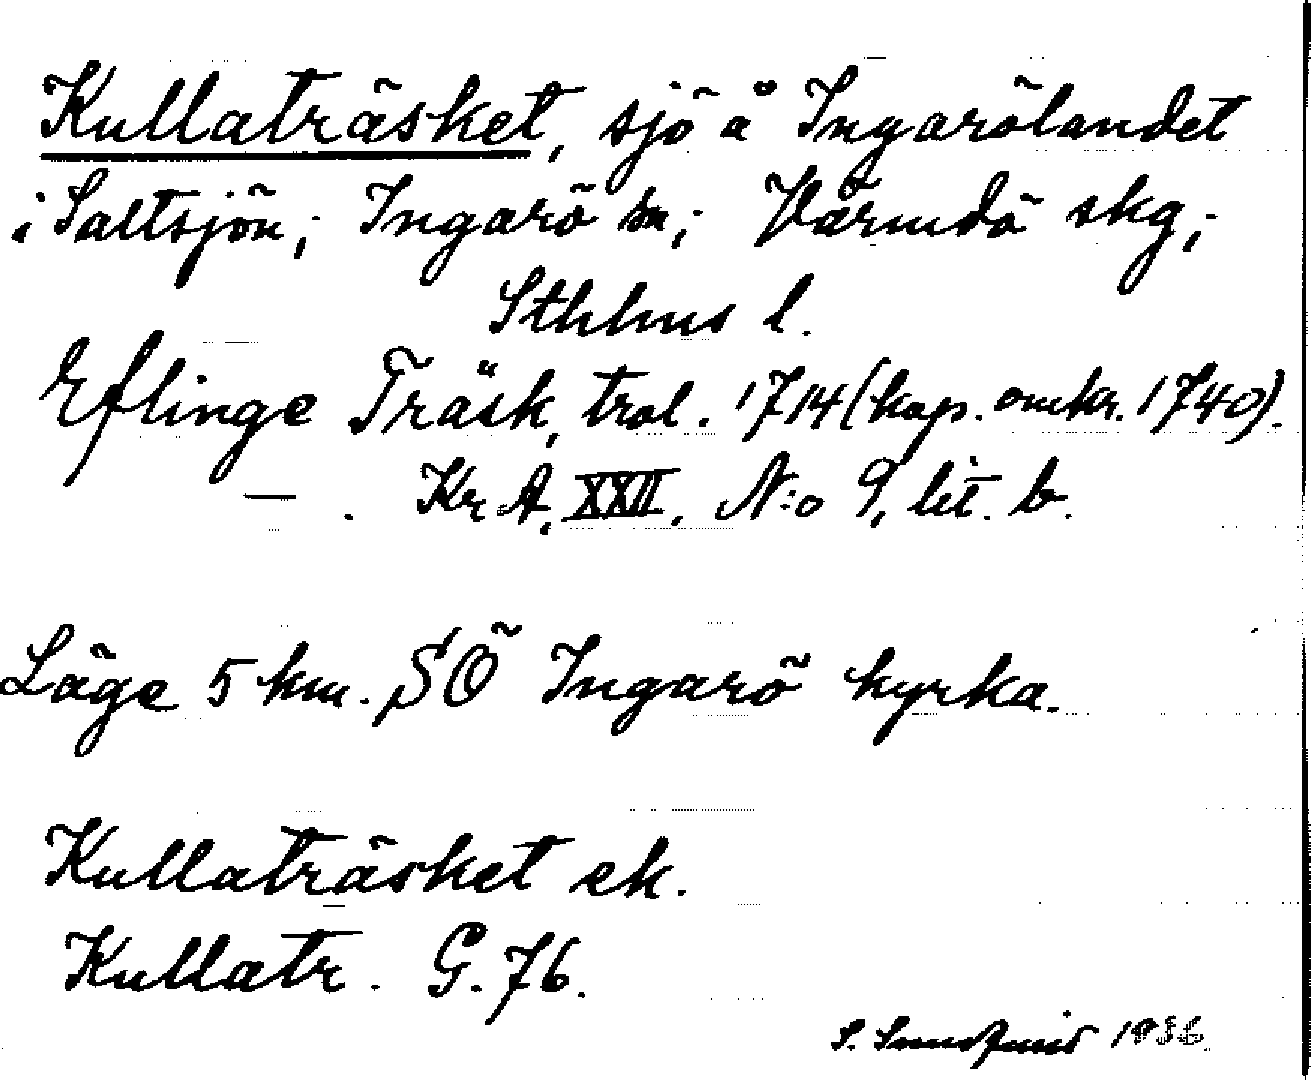 Kullaträsket, sjö å Ingarölandet
i Saltsjön; Ingarö sn; Värmdö skg;
Sthlms l.
Eflinge Träsk, trol. 1714 (kop. omkr. 1740).
— . Kr A, XXII, N:o 9, lit. b.
Läge 5 km. SÖ Ingarö kyrka.
Kullaträsket ek.
Kullatr. G. 76.
S. Sundquist 1936.